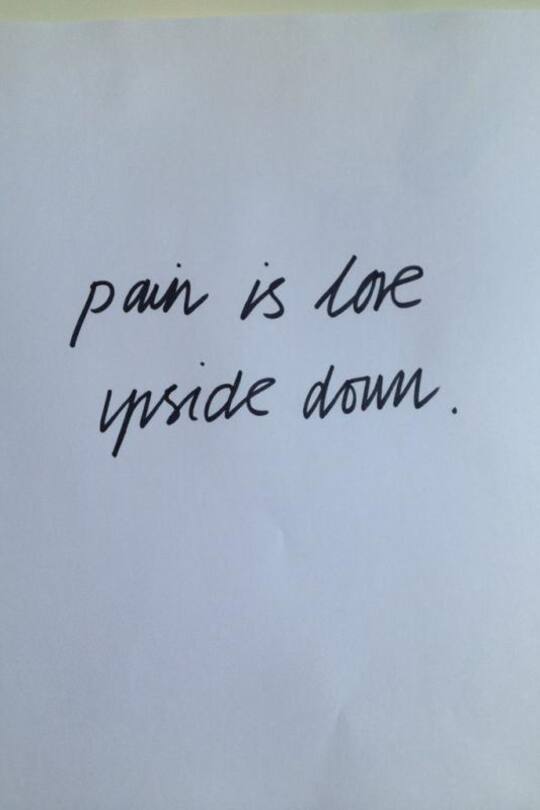 pain is love
upside down.